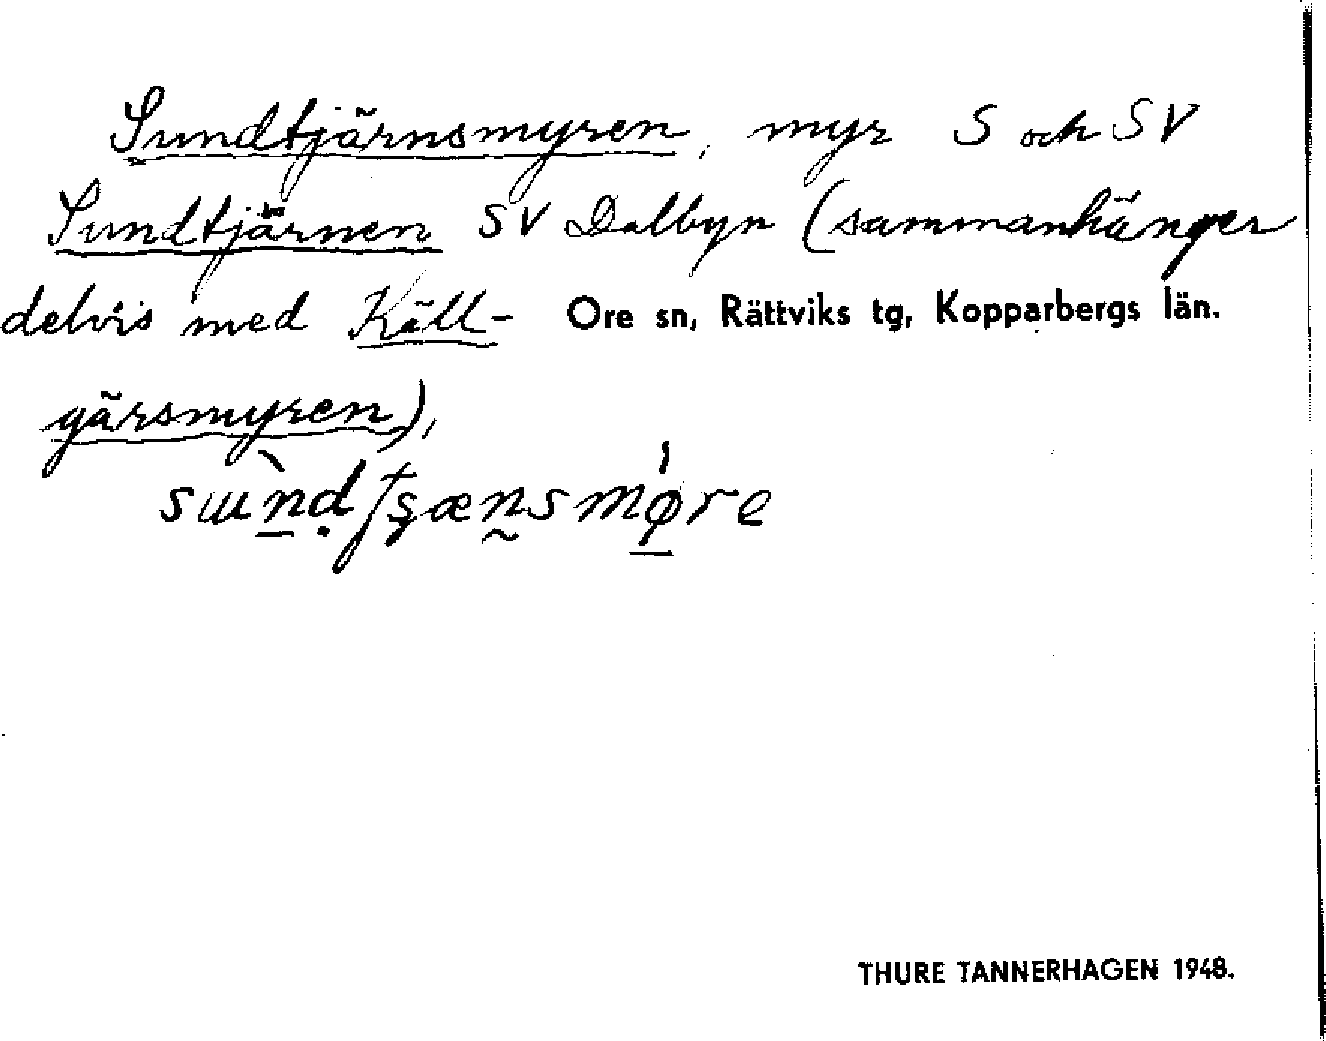 Sundtjärnsmyren, myr S och SV
Sundtjärnen SV Dalbyn (sammanhänger
delvis med Käll- Ore sn, Rättviks tg, Kopparbergs län.
gärsmyren),
THURE TANNERHAGEN 1948.